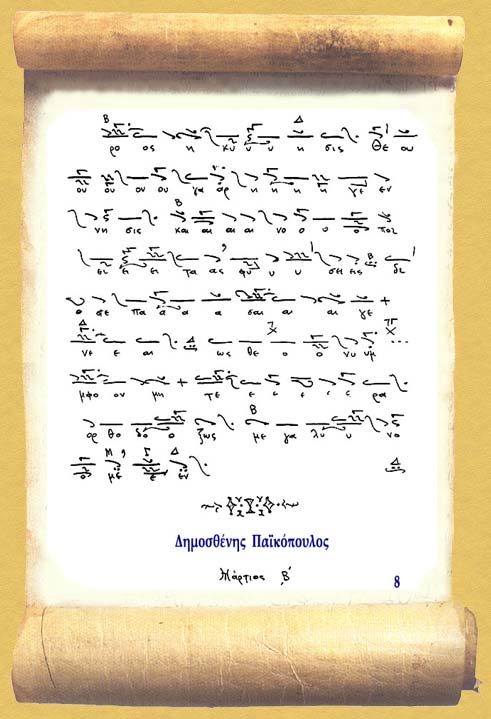 ρο ος η κυ υ υ η σις Θε ου
ου ου ου ου γα αρ η η η η γε εν
νη σις και αι αι αι νο ο υ ο πολ
ει ει ει τα ας φυ υ υ σε εις δι
ο σε πα α α α σαι αι αι γε
νε ε αι ως θε ο ο νυ υμ
μφο ον μη τε ε ε ε ε ε ρα
ορ θο δο ο ξως με γα λυ υ νο
ο με ε εν
Δημοσθένης Παϊκόπουλος
Μάρτιος Β΄
8